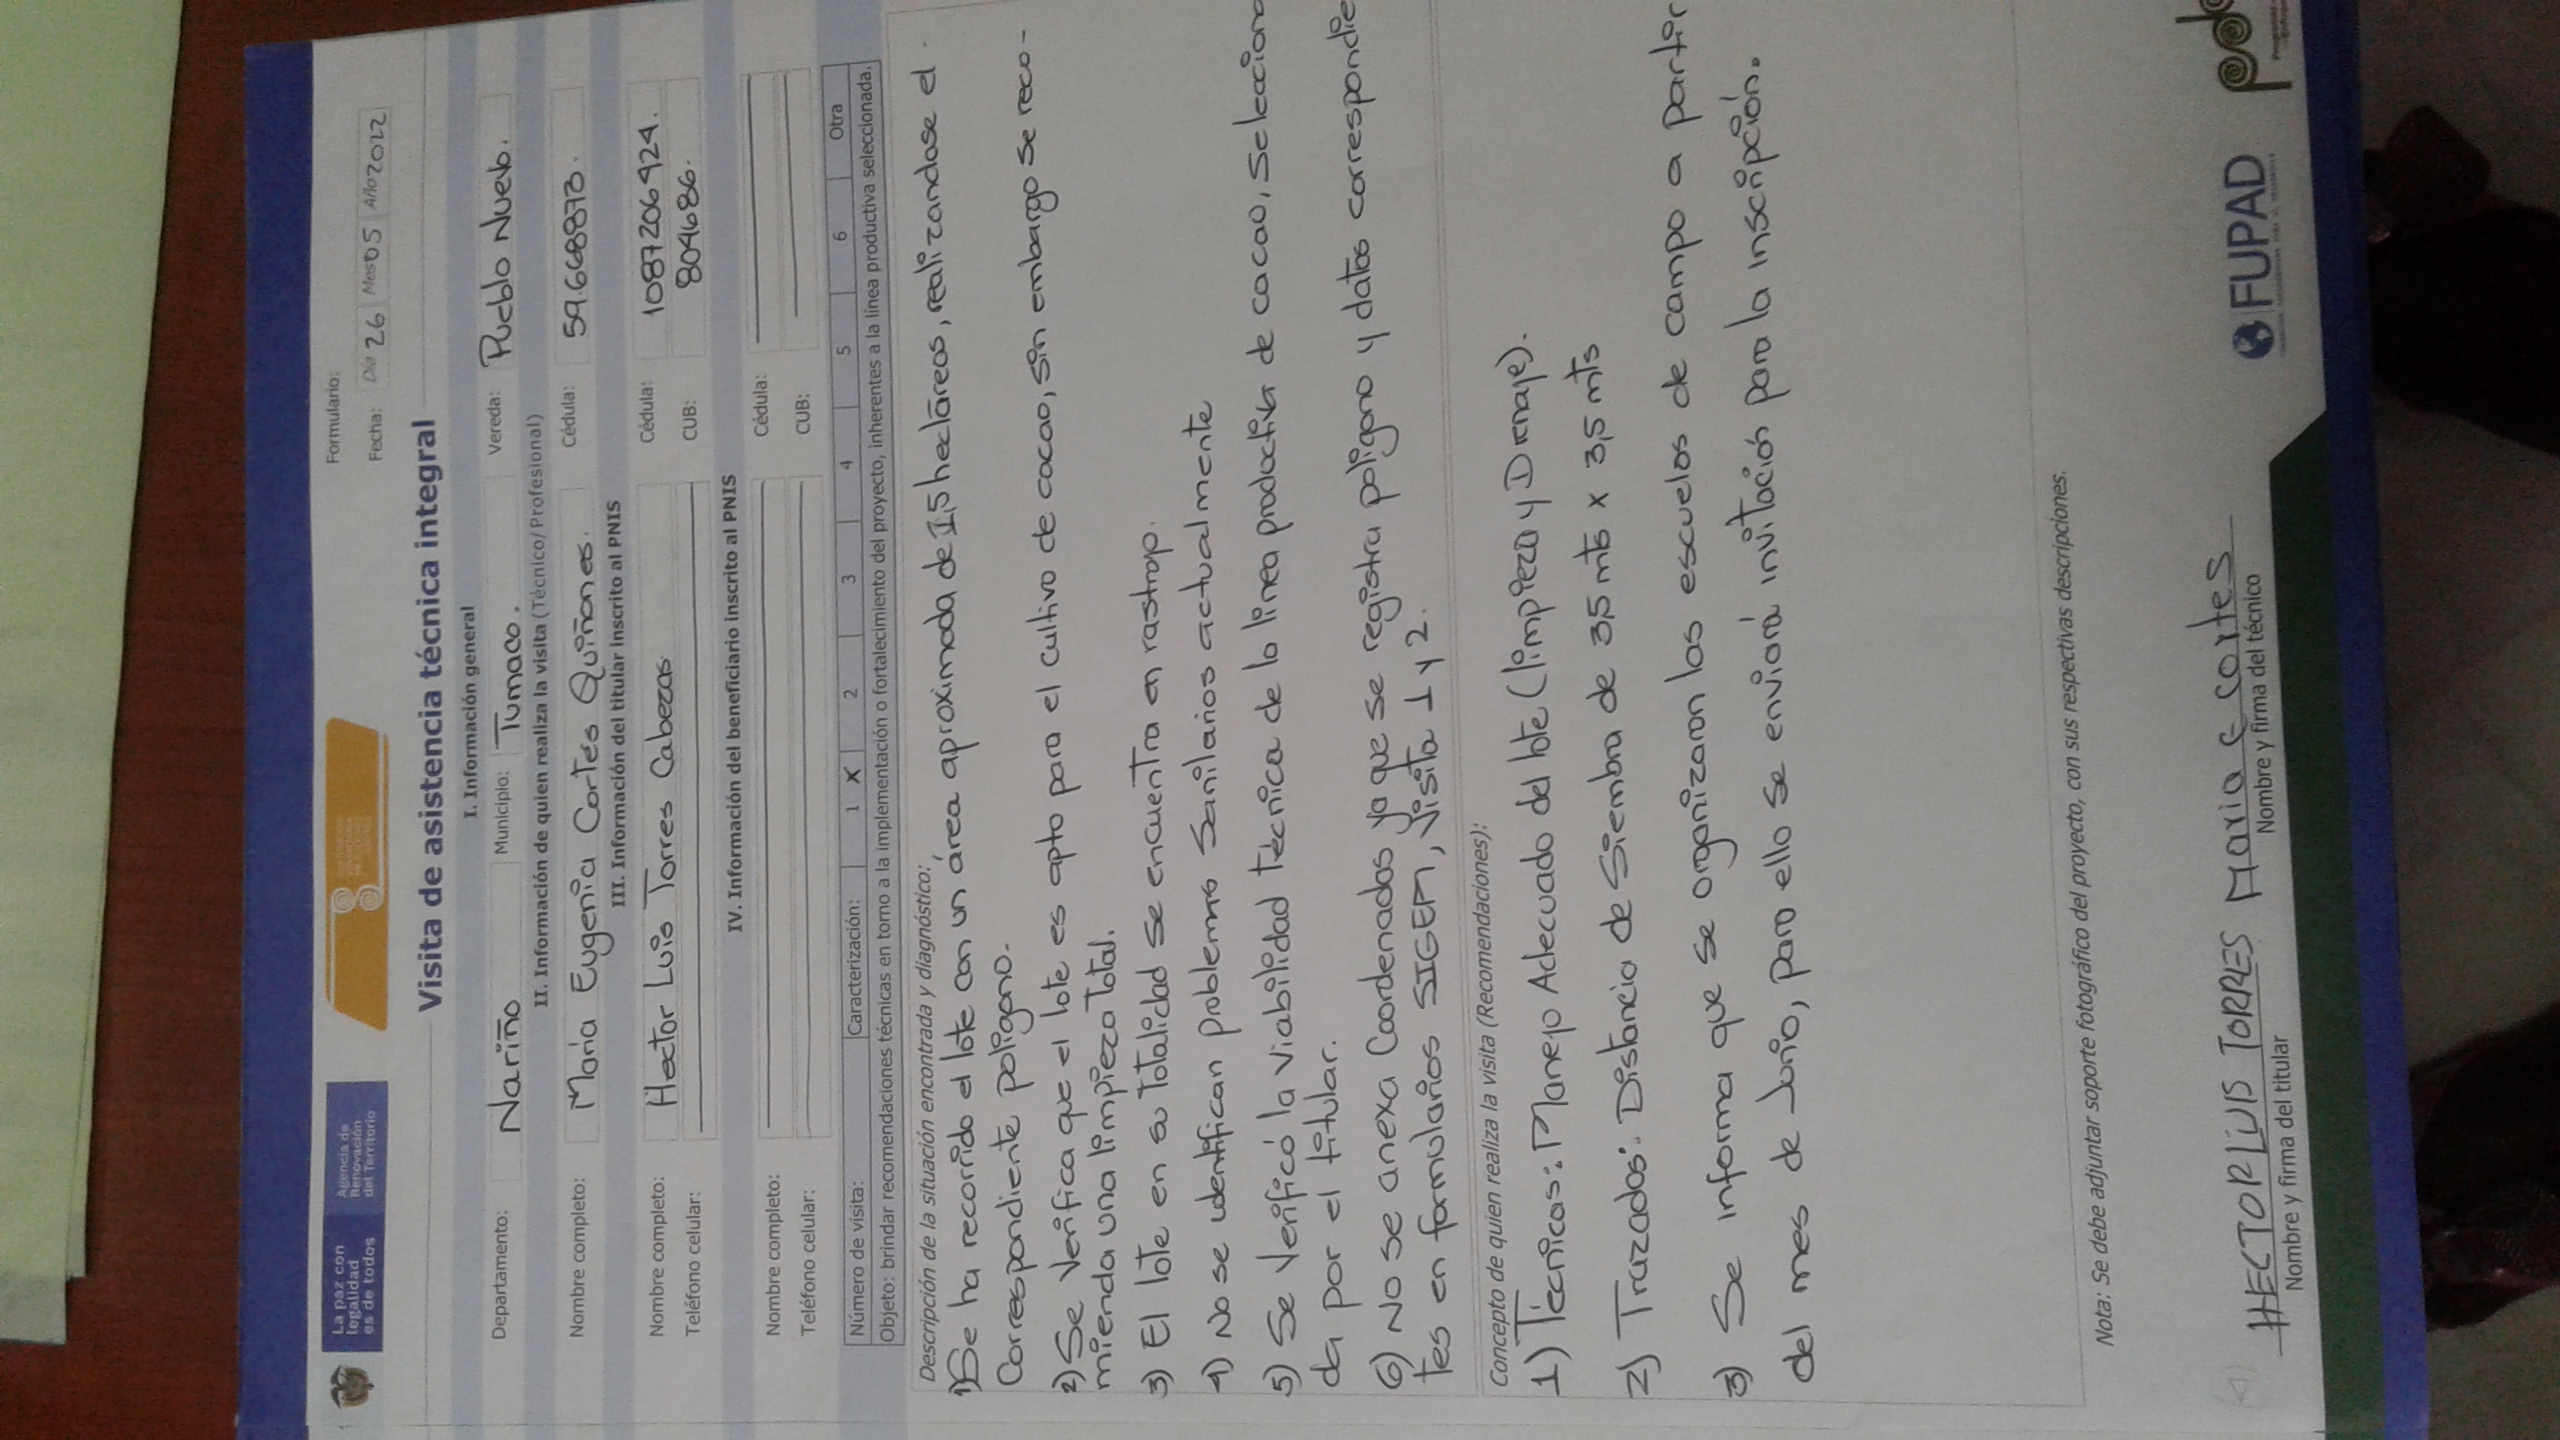 La paz con
legalidad
es de todos
Agencia de
Renovación
del Territorio
Formulario:
Fecha: Día 26 Mes 05 Año 2022
Visita de asistencia técnica integral
I. Información general
Departamento: Nariño Municipio: Tumaco. Vereda: Pueblo Nuevo.
II. Información de quien realiza la visita (Técnico/Profesional)
Nombre completo: María Eugenia Cortés Quiñones. Cédula: 59.668873.
III. Información del titular inscrito al PNIS
Nombre completo: Hector Luis Torres Cabezas. Cédula: 1087206924.
Teléfono celular: CUB: 804686.
IV. Información del beneficiario inscrito al PNIS
Nombre completo: Cédula:
Teléfono celular: CUB:
Número de visita: Caracterización: 1 X 2 3 4 5 6 Otra
Objeto: brindar recomendaciones técnicas en torno a la implementación o fortalecimiento del proyecto, inherentes a la línea productiva seleccionada.
Descripción de la situación encontrada y diagnóstico:
1) Se ha recorrido el lote con un área aproximada de 1,5 hectáreas, realizandose el
Correspondiente polígono.
2) Se Verifica que el lote es apto para el cultivo de cacao, sin embargo se reco-
mienda una limpieza total.
3) El lote en su totalidad se encuentra en rastrojo.
4) No se identifican problemas Sanitarios actualmente
5) Se Verificó la viabilidad Técnica de la línea productiva de cacao, Selecciona
da por el titular.
6) No se anexa Coordenadas ya que se registra polígono y datos correspondie
tes en formularios SIGEM, visita 1 y 2.
Concepto de quien realiza la visita (Recomendaciones):
1) Técnicas: Manejo Adecuado del lote (limpieza y Drenaje).
2) Trazados: Distancia de Siembra de 3,5 mts x 3,5 mts
3) Se informa que se organizaran las escuelas de campo a partir
del mes de Junio, para ello se enviará invitación para la inscripción.
Nota: Se debe adjuntar soporte fotográfico del proyecto, con sus respectivas descripciones.
HECTOR LUIS TORRES Maria E Cortes
Nombre y firma del titular Nombre y firma del técnico
FUPAD